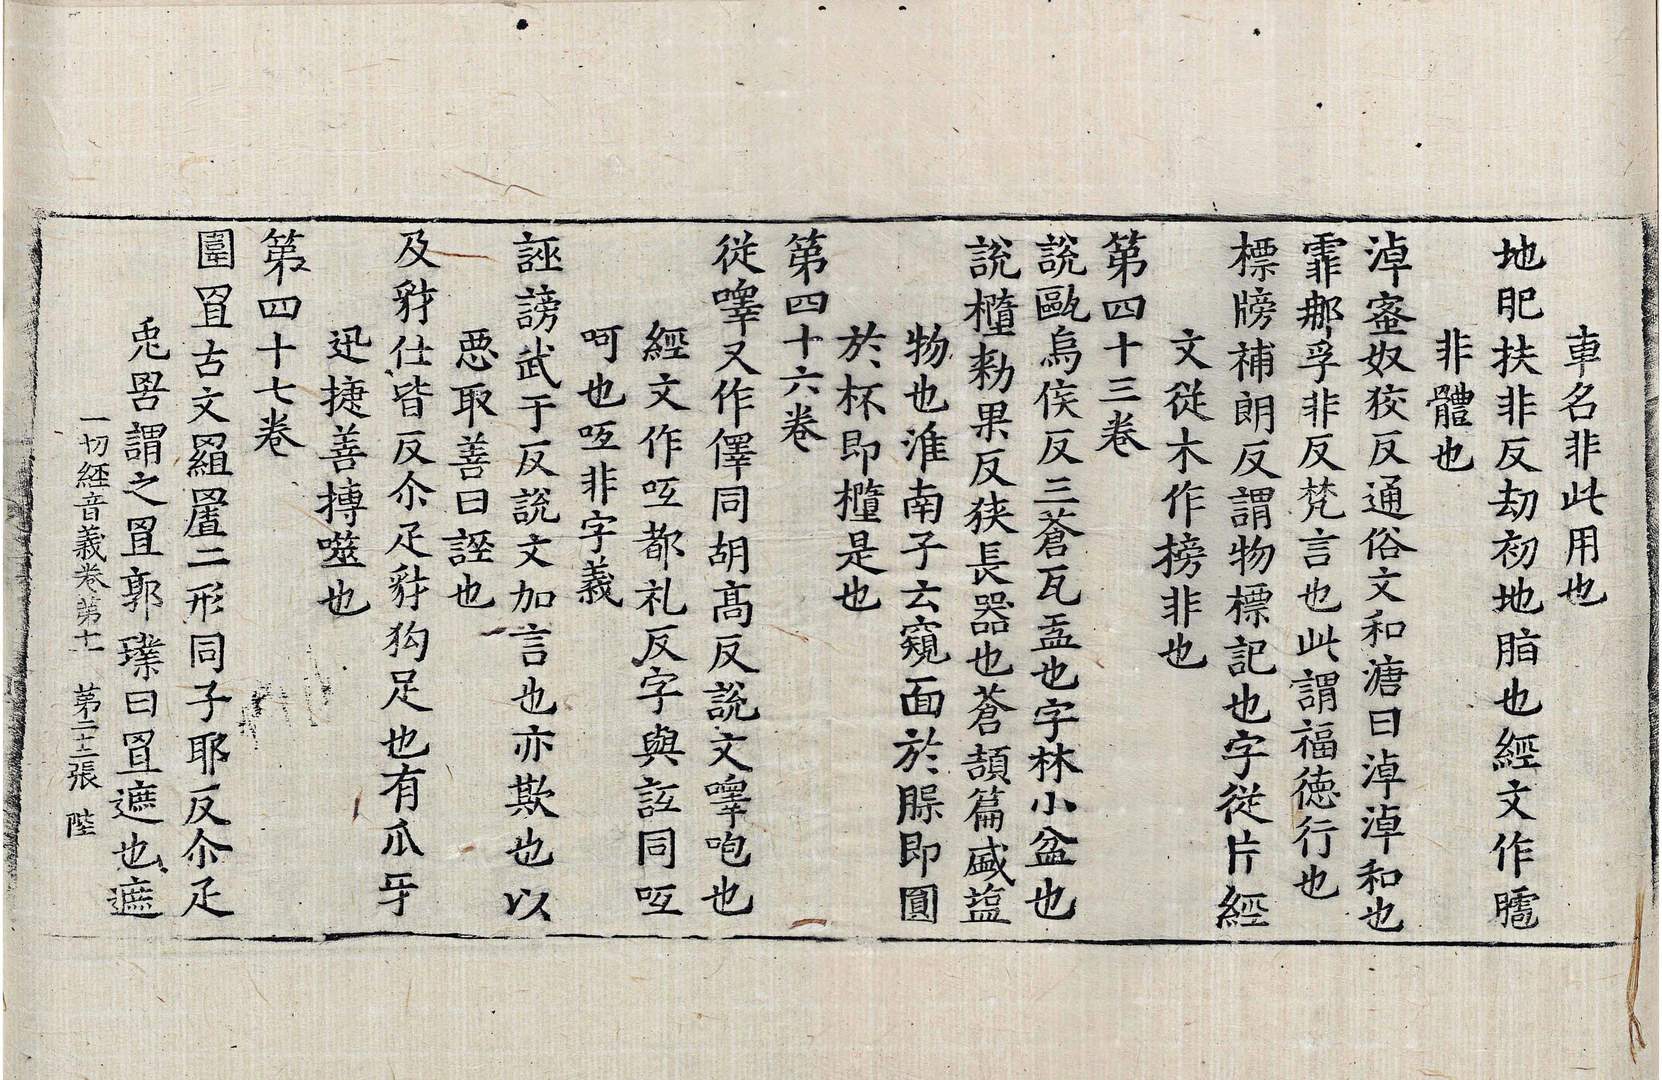 車名非此用也
地肥扶非反劫初地脂也經文作臕
非體也
淖蜜奴挍反通俗文和溏曰淖淖和也
霏那孚非反梵言也此謂福德行也
標牓補朗反謂物標記也字從片經
文從木作榜非也
第四十三卷
說甌烏侯反三蒼瓦盂也字林小盆也
說櫃勑果反狹長器也蒼頡篇盛䀋
物也淮南子云窺面於脲即圓
於杯即櫃是也
第四十六卷
從嘷又作㺅同胡高反說文嘷咆也
經文作呧都礼反字與詆同呧
呵也呧非字義
誣謗武于反說文加言也亦欺也以
惡取善曰誣也
及豺仕皆反尒疋豺狗足也有爪牙
迅捷善搏噬也
第四十七卷
圍罝古文䍜罝二形同子耶反尒疋
兎罟謂之罝郭璞曰罝遮也遮
一切經音義卷第十一 第二十二張 陛